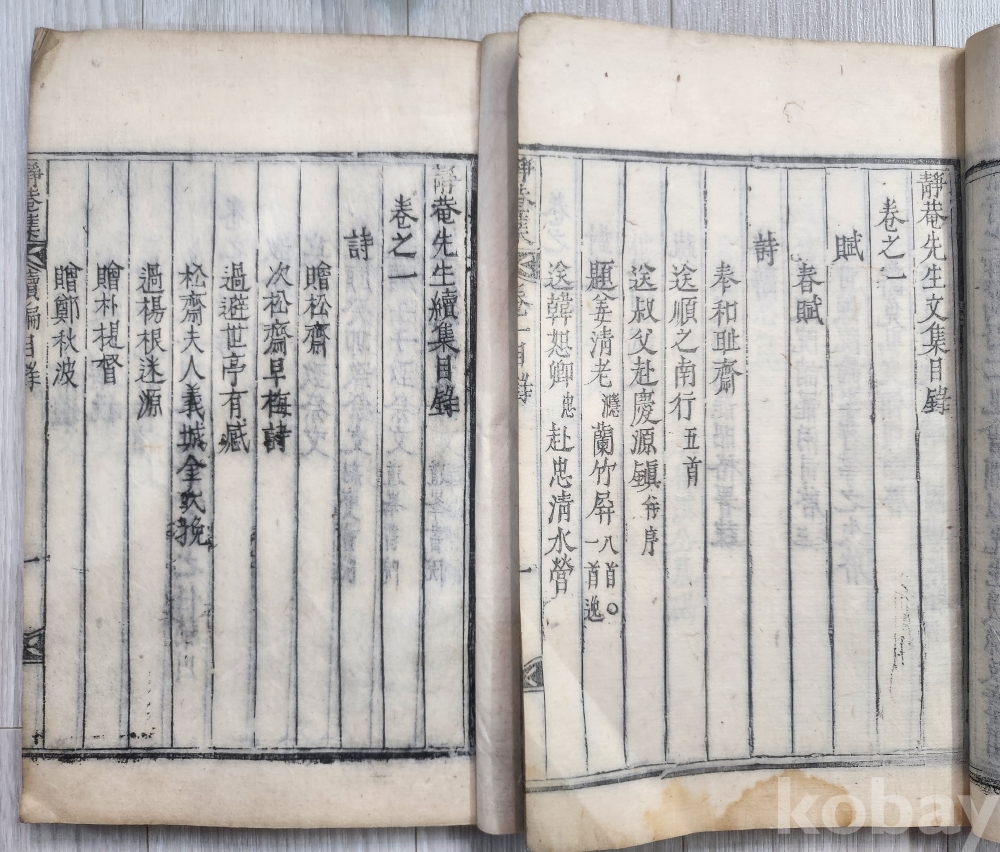 靜菴先生文集目錄
卷之一
賦
春賦
詩
奉和耻齋
送順之南行五首
送叔父赴慶源鎭并序
題姜淸老濦蘭竹屛八首○一首逸
送韓恕卿忠赴忠淸水營
靜菴先生續集目錄
卷之一
詩
贈松齋
次松齋早梅詩
過避世亭有感
松齋夫人義城金氏挽
過楊根迷源
贈朴提督
贈鄭秋波
靜菴集
續編目錄
一
kobay